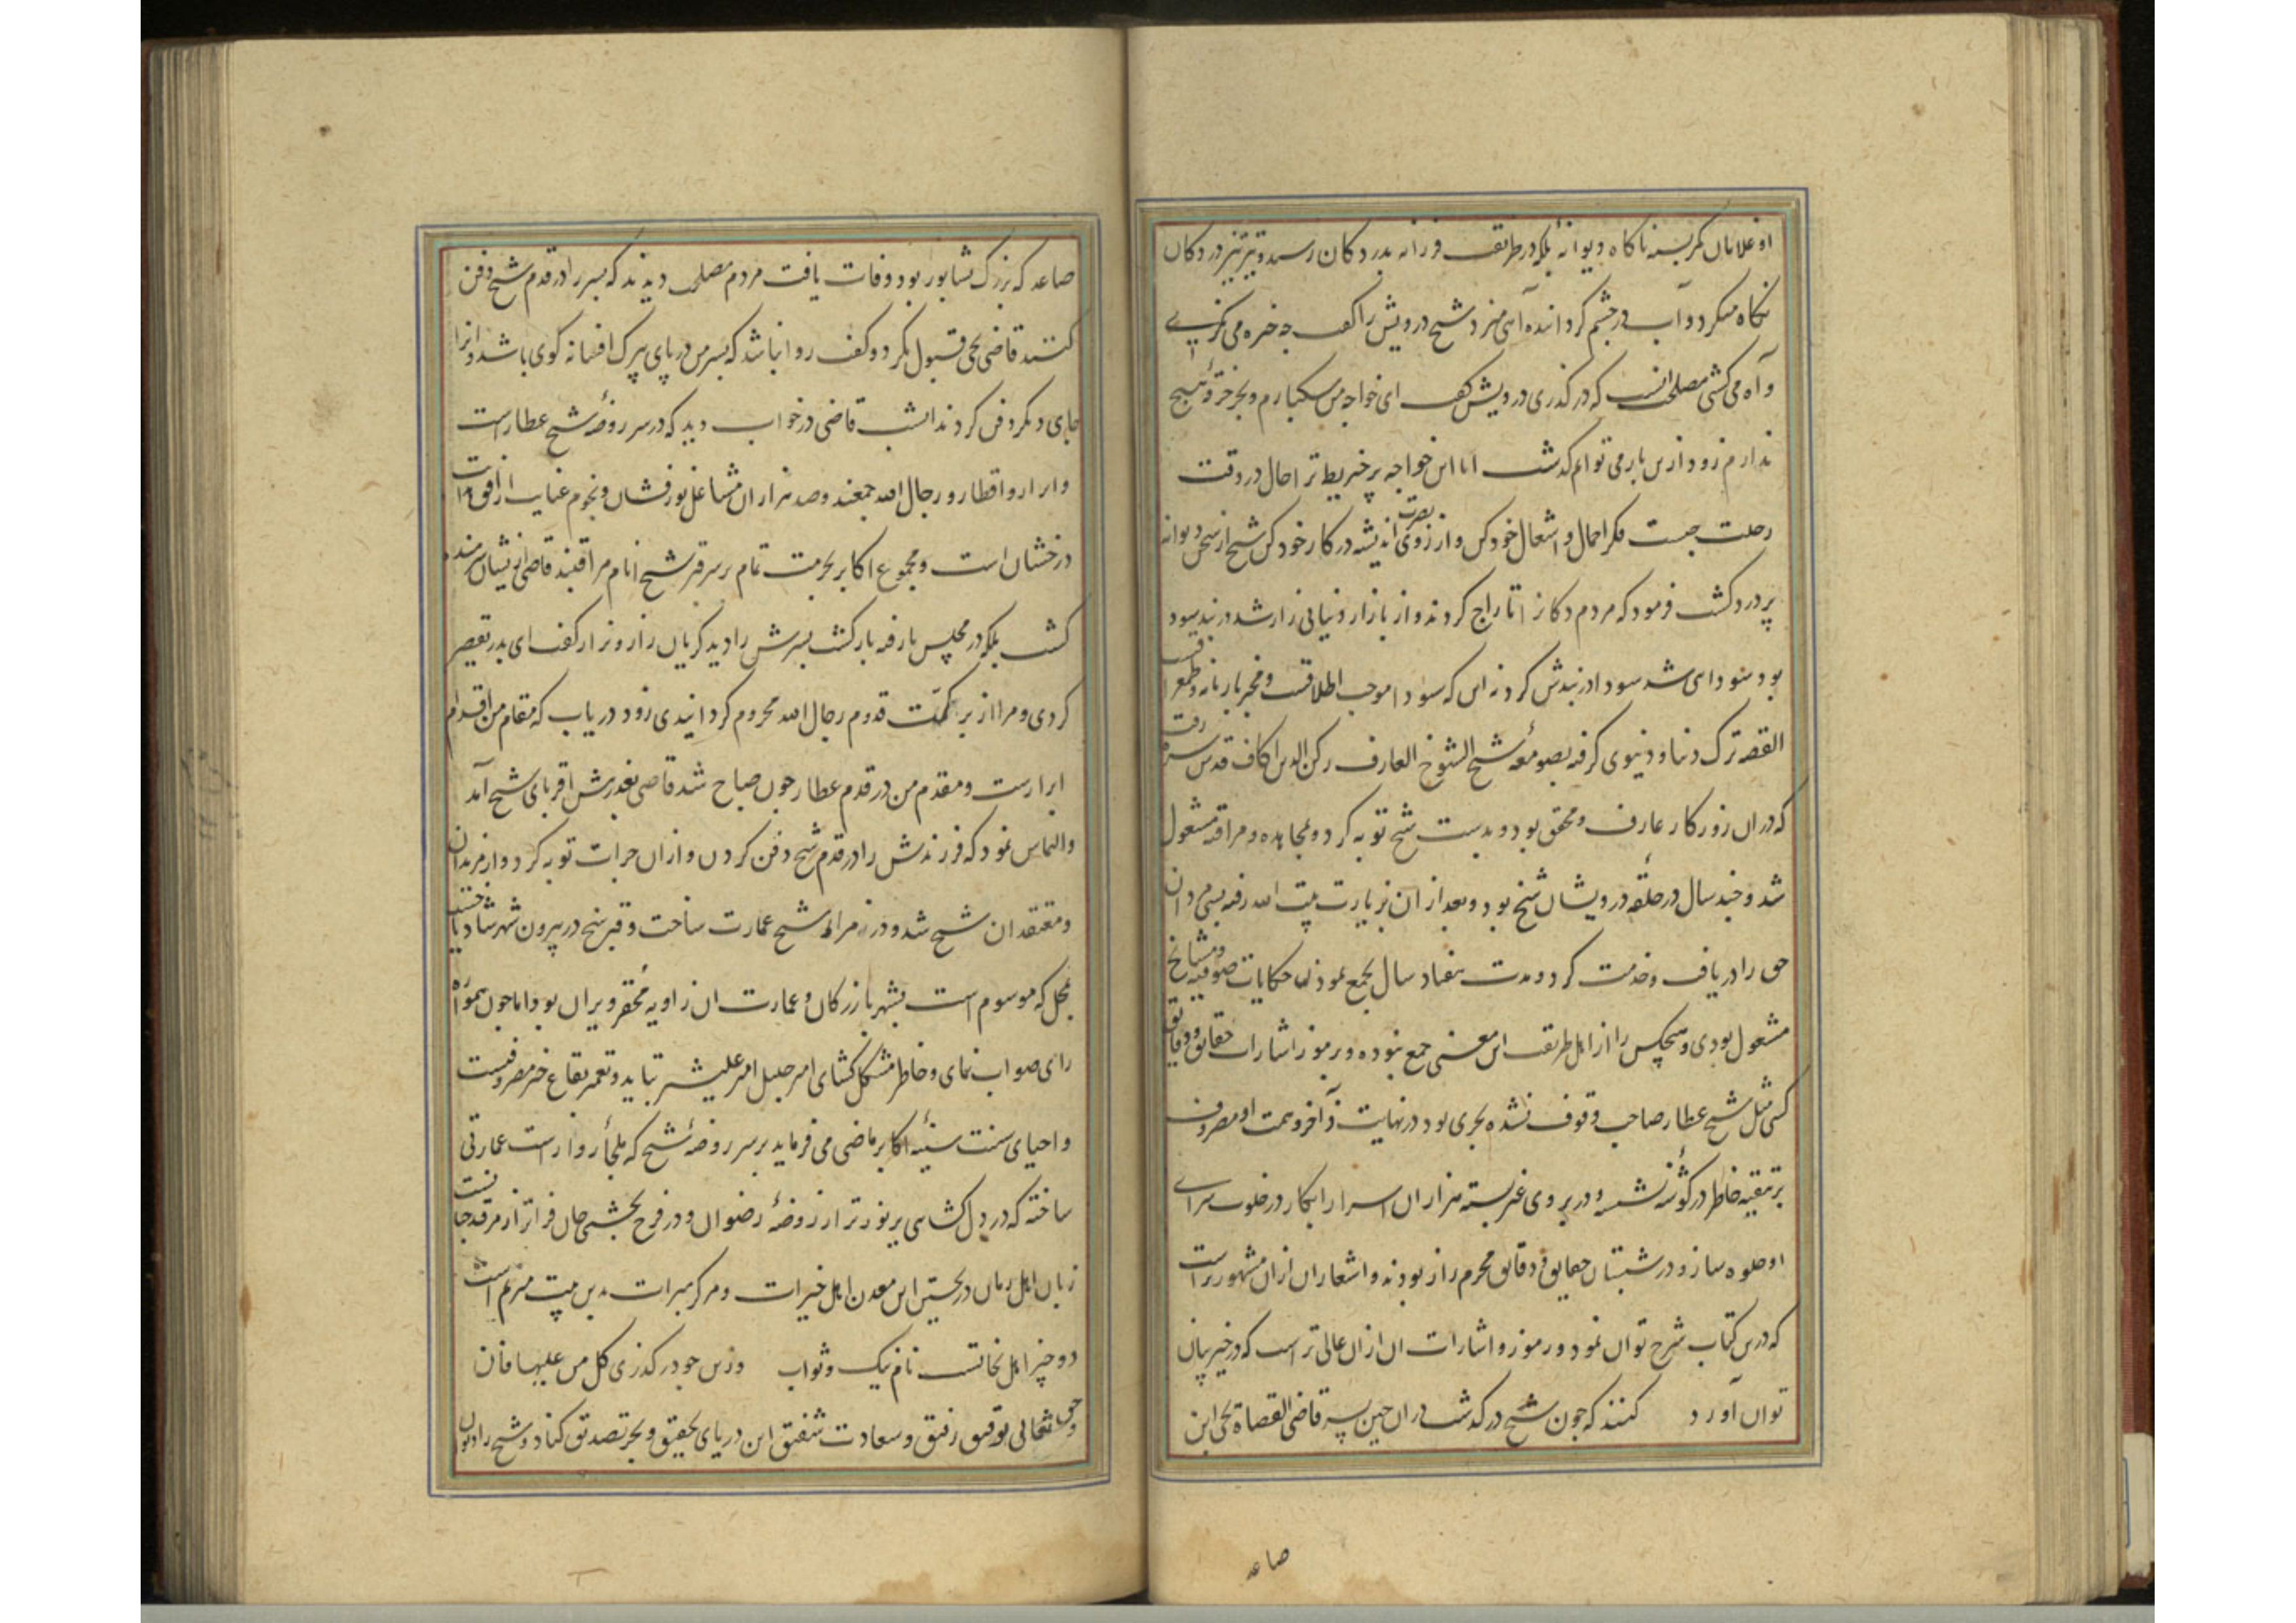 او غلامان کمر بسته ناکاه دیوانهٔ بلکه در طریقت فرزانه بدر دکان رسید و تیز تیز در دکان
نکاه میکرد و آب در چشم کردانیده آهی میزد شیخ درویش را کفت چه خیره می نکری
و آه می کشی مصلحت آنست که در کذری درویش کفت ای خواجه من سبکبارم و بجز خرقهٔ هیچ
ندارم زود ازین بازار می توانم کذشت اما این خواجه پر خریطه تر احمال در وقت
رحلت چیست فکر احمال و اثقال خود کن و از روی بصیرت اندیشه در کار خود کن شیخ از سخن دیوانه
پر درد کشت فرمود که مردم دکان را تاراج کردند و از بازار دنیایی زار شد در بند سود
بود سودایی شد سودا در بندش کرد نه این که سودا موجب اطلاقست و مخبر بارنامه و طمطراق
القصه ترک دنیا و دنیوی کرفته بصومعهٔ شیخ الشیوخ العارف رکن الدین اکاف قدس سره رفت
که در آن روزکار عارف و محقق بود و بدست شیخ توبه کرد و بمجاهده و مراقبه مشغول
شد و چند سال در حلقهٔ درویشان شیخ بود و بعد از آن بزیارت بیت الله رفته بسی مردان
حق را دریافت و خدمت کرد و مدت هفتاد سال بجمع نمودن حکایات صوفیه و مشایخ
مشغول بودی و هیچکس را از اهل طریقت این معنی جمع نبوده و بر رموز اشارات حقایق و دقایق
کسی مثل شیخ عطار صاحب وقوف نشده بحری بود در نهایت وآفر و همت او مصروف
بر تنقیه خاطر در کوشهٔ نشسته و در بر روی غیر بسته هزاران اسرار ابکار در خلوت سرای
او جلوه ساز و در شبستان حقایق و دقایق محرم راز بودند و اشعار ان ازان مشهورتر است
که درین کتاب شرح توان نمود و رموز و اشارات ان ازان عالی تر است که در حیز بیان
توان آورد کنند که چون شیخ در کذشت در ان حین پسر قاضی القضاة یحیی ابن
صاعد
صاعد که بزرک نشابور بود وفات یافت مردم مصلحت دیدند که پسر را در قدم شیخ دفن
کنند قاضی یحیی قبول نکرد و کفت روا نباشد که پسر من در پای پیرک افسانه کوی باشد و انرا
جای دیکر دفن کردند انشب قاضی در خواب دید که در سر روضهٔ شیخ عطار است
و ابرار و اقطار و رجال الله جمعند و صد هزاران مشاعل نور فشان و نجوم عنایت از افق
درخشان است و مجموع اکابر بحرمت تمام بر سر قبر شیخ انام مراقبند قاضی از ایشان شرمنده
کشت بلکه در مجلس بار نه بار کشت پسرش را دید کریان زار و نزار کفت ای پدر تقصیر
کردی و مرا از برکت قدوم رجال الله محروم کردانیدی زود دریاب که مقام من اقدام
ابرار ست و مقدم من در قدم عطار چون صباح شد قاضی بعذر پیش اقربای شیخ آمد
والتماس نمود که فرزندش را در قدم شیخ دفن کردن و ازان جرات توبه کرد و از مریدان
و معتقدان شیخ شد و در سر مزار شیخ عمارت ساخت و قبر شیخ در بیرون شهر شادیاخ
بمحل که موسوم است بشهر بازرکان و عمارت ان زاویه محقر و یران بود اما چون همواره
رای صواب نمای و خاطر مشکل کشای امیر جلیل امیر علیشیر بتایید و تعمیر بقاع خیر مصروفست
و احیای سنت سنیهٔ اکابر ماضی می فرماید بر سر روضهٔ شیخ که ملجأ زوار است عمارتی
ساخته که در دل کشایی پر نورتر از روضهٔ رضوان و در فرح بخشی جان فزاتر از مرقد
زبان اهل زمان در تحسین این معدن اهل خیرات و مرکز مبرات بدین بیت مترنم است
دو چیز اهل نجاتست نام نیک و ثواب وزین چو در کذری کل من علیها فان
حق تعالی توفیق رفیق و سعادت شفیق این دریای تحقیق و بحر تصدیق کناد و شیخ را